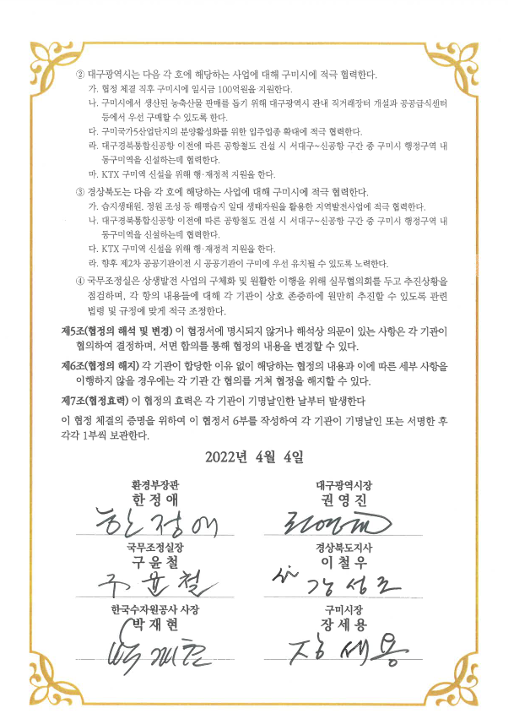 ② 대구광역시는 다음 각 호에 해당하는 사업에 대해 구미시에 적극 협력한다.
가. 협정 체결 직후 구미시에 일시금 100억원을 지원한다.
나. 구미시에서 생산된 농축산물 판매를 돕기 위해 대구광역시 관내 직거래장터 개설과 공공급식센터
등에서 우선 구매할 수 있도록 한다.
다. 구미국가5산업단지의 분양활성화를 위한 입주업종 확대에 적극 협력한다.
라. 대구경북통합신공항 이전에 따른 공항철도 건설 시 서대구~신공항 구간 중 구미시 행정구역 내
동구미역을 신설하는데 협력한다.
마. KTX 구미역 신설을 위해 행·재정적 지원을 한다.
③ 경상북도는 다음 각 호에 해당하는 사업에 대해 구미시에 적극 협력한다.
가. 습지생태원, 정원 조성 등 해평습지 일대 생태자원을 활용한 지역발전사업에 적극 협력한다.
나. 대구경북통합신공항 이전에 따른 공항철도 건설 시 서대구~신공항 구간 중 구미시 행정구역 내
동구미역을 신설하는데 협력한다.
다. KTX 구미역 신설을 위해 행·재정적 지원을 한다.
라. 향후 제2차 공공기관이전 시 공공기관이 구미에 우선 유치될 수 있도록 노력한다.
④ 국무조정실은 상생발전 사업의 구체화 및 원활한 이행을 위해 실무협의회를 두고 추진상황을
점검하며, 각 항의 내용들에 대해 각 기관이 상호 존중하에 원만히 추진할 수 있도록 관련
법령 및 규정에 맞게 적극 조정한다.
제5조(협정의 해석 및 변경) 이 협정서에 명시되지 않거나 해석상 의문이 있는 사항은 각 기관이
협의하여 결정하며, 서면 합의를 통해 협정의 내용을 변경할 수 있다.
제6조(협정의 해지) 각 기관이 합당한 이유 없이 해당하는 협정의 내용과 이에 따른 세부 사항을
이행하지 않을 경우에는 각 기관 간 협의를 거쳐 협정을 해지할 수 있다.
제7조(협정효력) 이 협정의 효력은 각 기관이 기명날인한 날부터 발생한다
이 협정 체결의 증명을 위하여 이 협정서 6부를 작성하여 각 기관이 기명날인 또는 서명한 후
각각 1부씩 보관한다.
2022년 4월 4일
환경부장관
한 정 애
한 정 애
대구광역시장
권 영 진
권영진
국무조정실장
구 윤 철
구 윤 철
경상북도지사
이 철 우
강 성 조
한국수자원공사 사장
박 재 현
박재현
구미시장
장 세 용
장 세 용